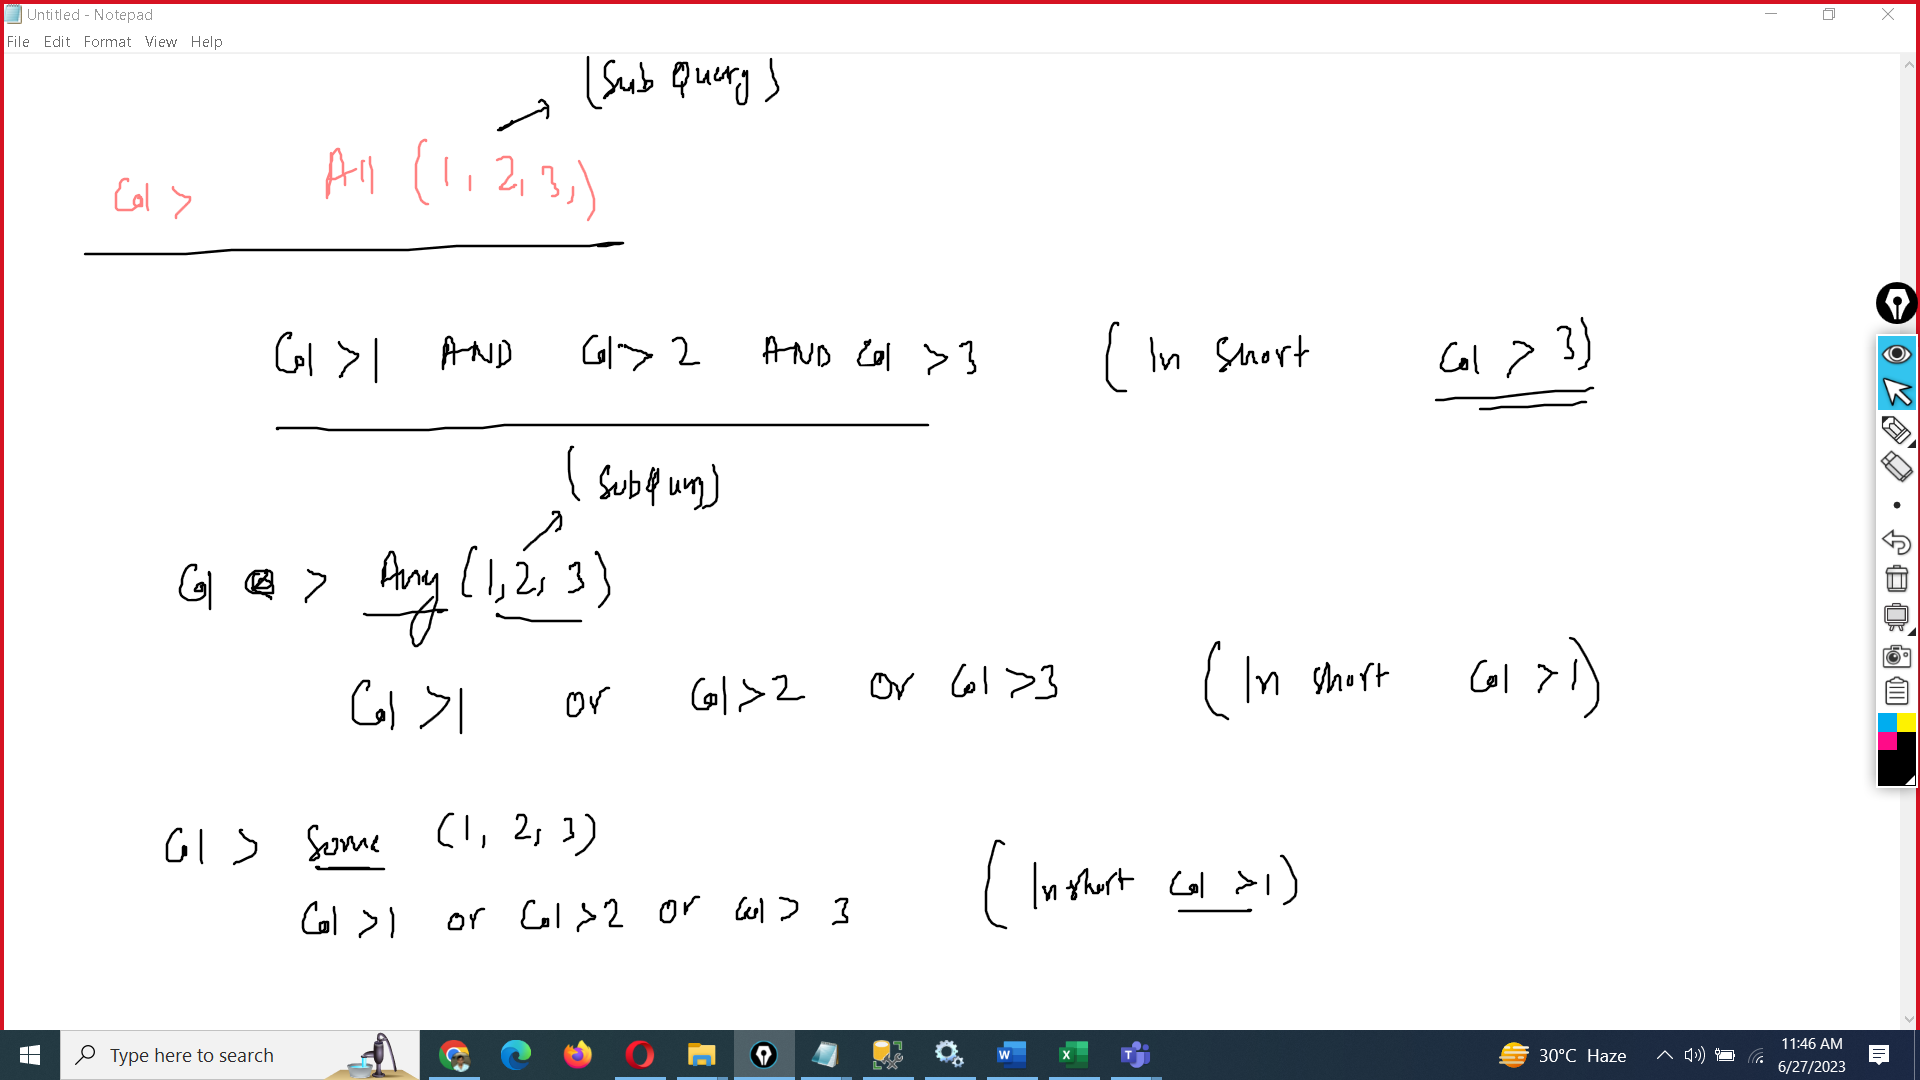 Untitled - Notepad
File Edit Format View Help
(Sub Query)
Col > All (1, 2, 3,)
Col >1 AND Col > 2 AND Col > 3 (In Short Col > 3)
(SubQuery)
Col > Any (1, 2, 3)
Col >1 or Col >2 or Col >3 (In short Col >1)
Col > Some (1, 2, 3)
Col >1 or Col >2 or Col > 3 (In short Col >1)
Type here to search 30°C Haze 11:46 AM
6/27/2023